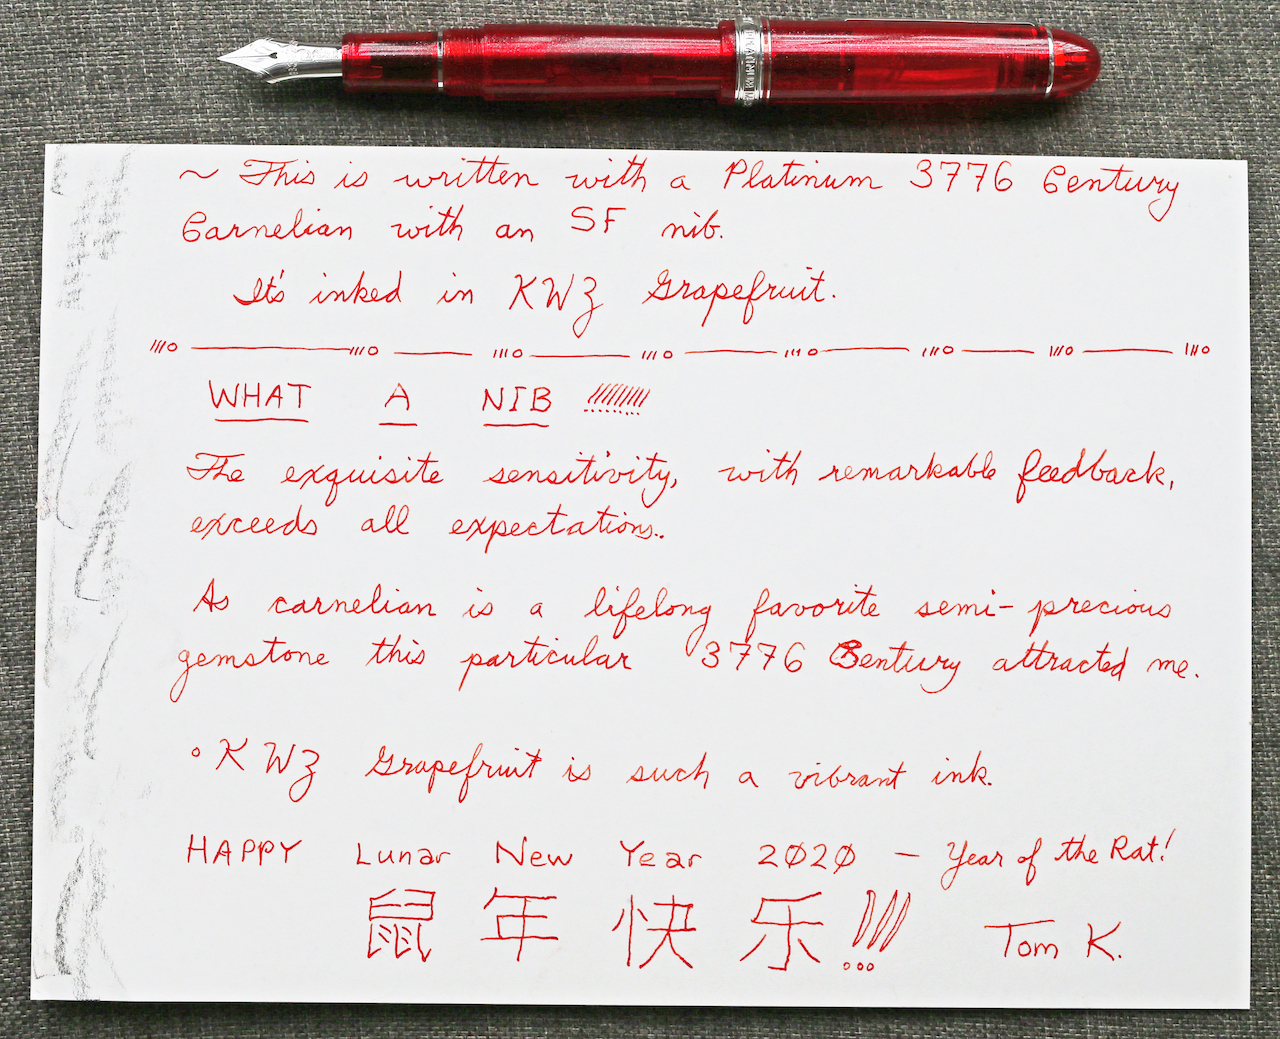 ~ This is written with a Platinum 3776 Century
Carnelian with an SF nib.
It's inked in KWZ Grapefruit.
WHAT A NIB !!!!!!!!!
The exquisite sensitivity, with remarkable feedback,
exceeds all expectations..
As carnelian is a lifelong favorite semi-precious
gemstone this particular 3776 Century attracted me.
° KWZ Grapefruit is such a vibrant ink.
HAPPY Lunar New Year 2020 – Year of the Rat!
鼠年快乐!!!
Tom K.